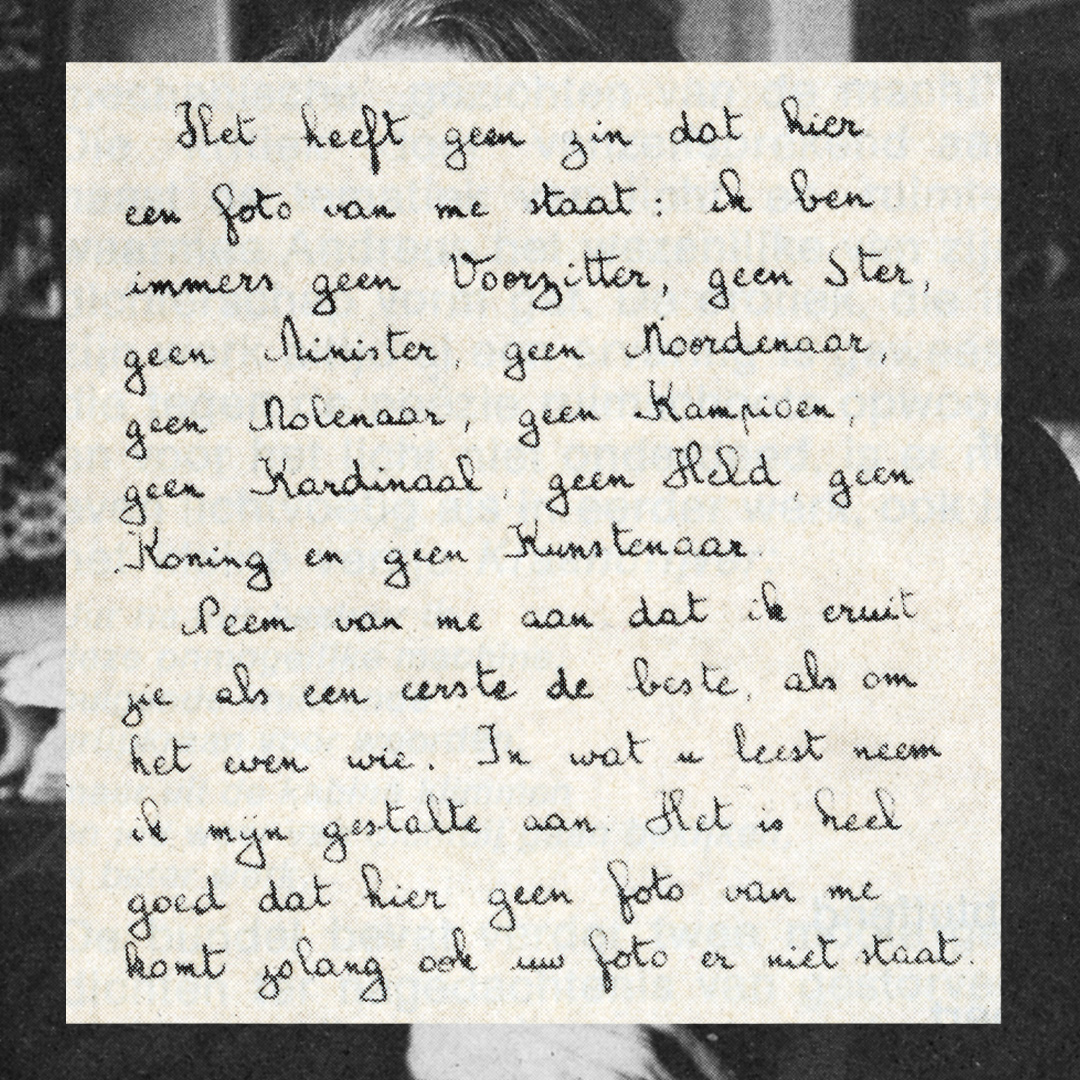 Het heeft geen zin dat hier
een foto van me staat: ik ben
immers geen Voorzitter, geen Ster,
geen Minister, geen Moordenaar,
geen Molenaar, geen Kampioen,
geen Kardinaal, geen Held, geen
Koning en geen Kunstenaar.
Neem van me aan dat ik eruit
zie als een eerste de beste, als om
het even wie. In wat u leest neem
ik mijn gestalte aan. Het is heel
goed dat hier geen foto van me
komt zolang ook uw foto er niet staat.